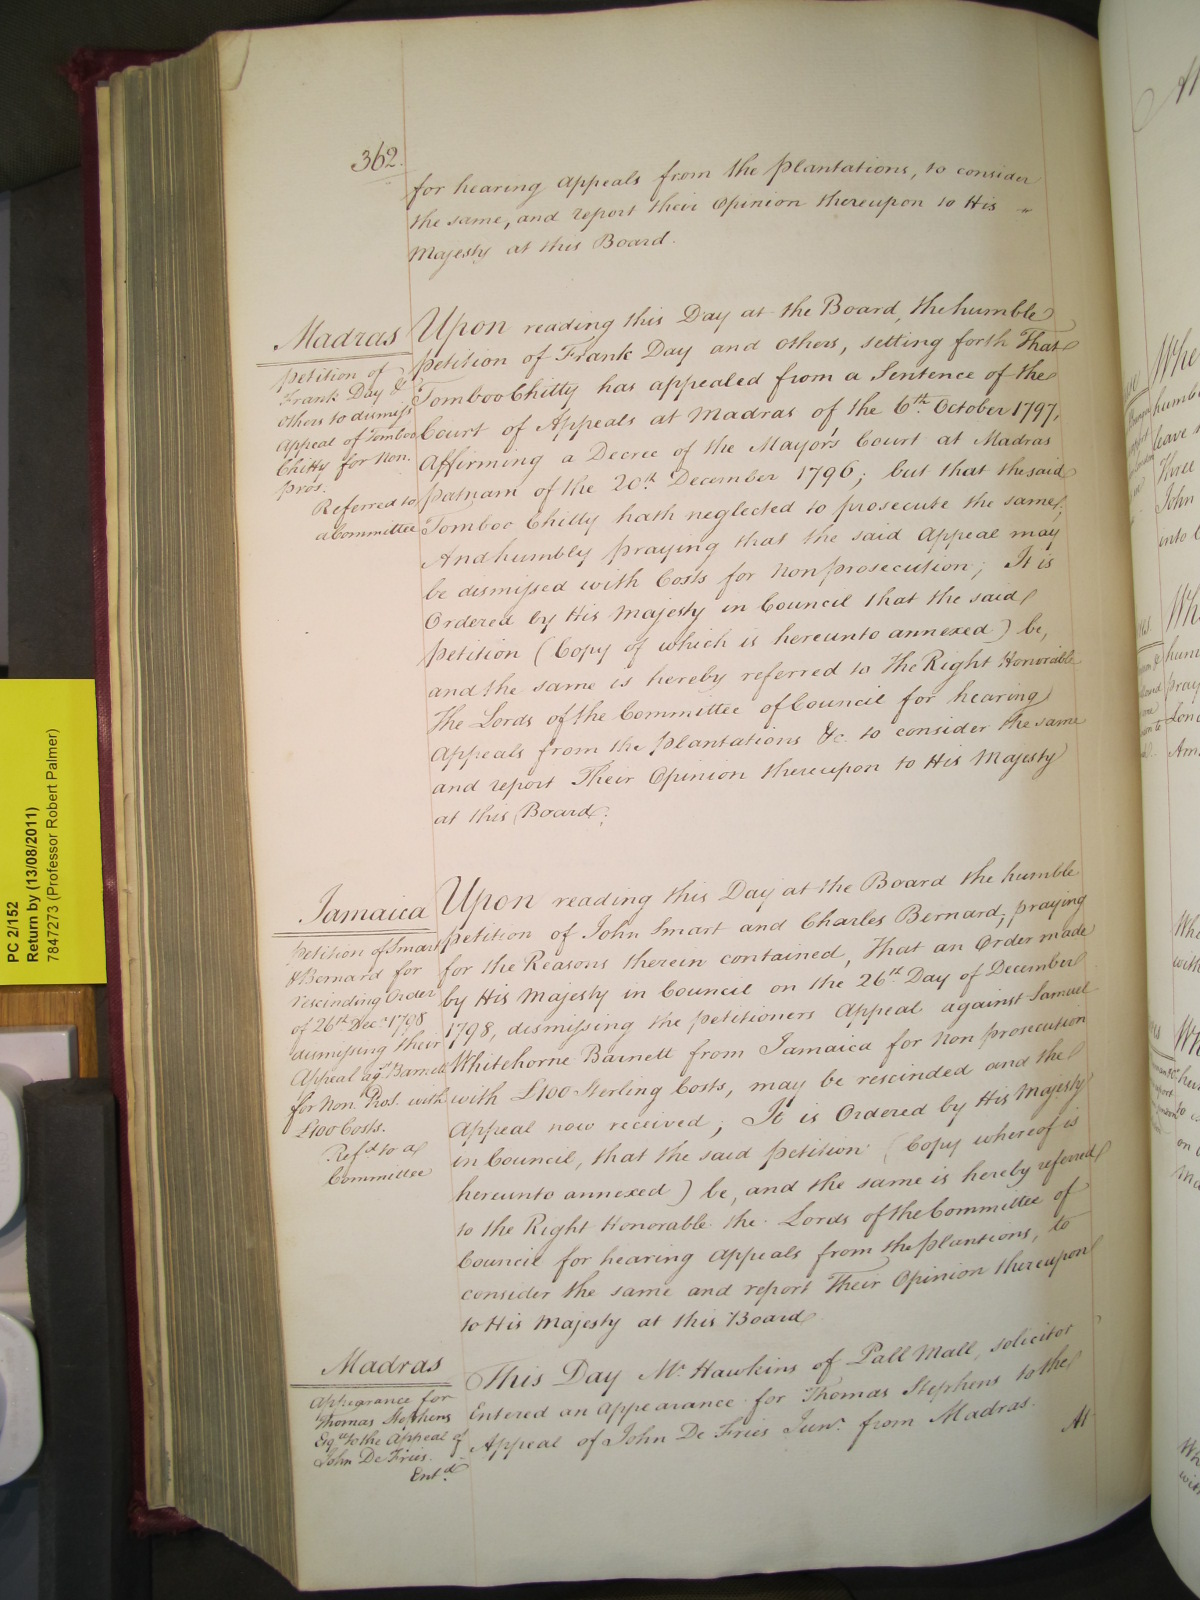 362.
for hearing Appeals from the Plantations, to consider
the same, and report their Opinion thereupon to His
Majesty at this Board.
Madras
Petition of
Frank Day &
others to dismiss
Appeal of Tomboo
Chitty for Non.
pros.
Referred to
a Committee
Upon reading this Day at the Board, the humble
Petition of Frank Day and others, setting forth That
Tomboo Chitty has appealed from a Sentence of the
Court of Appeals at Madras of the 6th October 1797,
Affirming a Decree of the Mayor's Court at Madras
patnam of the 20th December 1796; but that the said
Tomboo Chitty hath neglected to prosecute the same;
And humbly praying that the said Appeal may
be dismissed with Costs for non prosecution; It is
Ordered by His Majesty in Council that the said
Petition (Copy of which is hereunto annexed) be,
and the same is hereby referred to the Right Honorable
the Lords of the Committee of Council for hearing
Appeals from the Plantations &c. to consider the same
and report Their Opinion thereupon to His Majesty
at this Board.
Jamaica
Petition of Smart
& Bernard for
rescinding Order
of 26th Decr 1798
dismissing their
Appeal agt Barnett
for Non Pros. with
£100 Costs.
Refd to a
Committee
Upon reading this Day at the Board the humble
Petition of John Smart and Charles Bernard, praying
for the Reasons therein contained, That an Order made
by His Majesty in Council on the 26th Day of December
1798, dismissing the Petitioners Appeal against Samuel
Whitehorne Barnett from Jamaica for non prosecution
with £100 Sterling Costs, may be rescinded and the
Appeal now received, It is Ordered by His Majesty
in Council, that the said Petition (Copy whereof is
hereunto annexed) be, and the same is hereby referred
to the Right Honorable the Lords of the Committee of
Council for hearing Appeals from the Plantions, to
consider the same and report Their Opinion thereupon
to His Majesty at this Board
Madras
Appearance for
Thomas Stephens
Esqre to the Appeal of
John De Fries.
Entd
This Day Mr Hawkins of Pall Mall, solicitor
Entered an Appearance for Thomas Stephens to the
Appeal of John De Fries Junr from Madras.
At
PC 2/152
Return by (13/08/2011)
7847273 (Professor Robert Palmer)